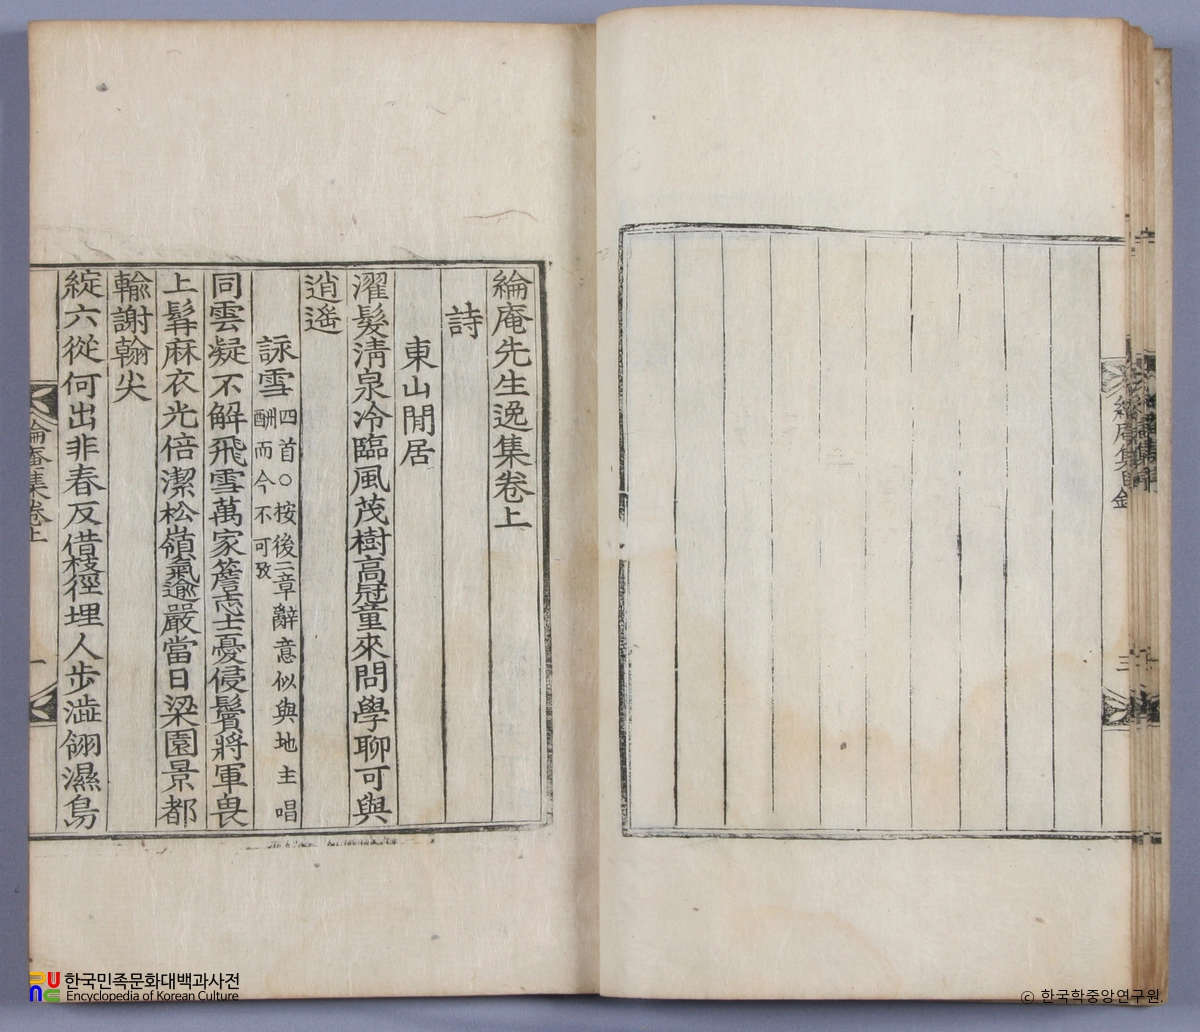 綸庵集目錄
三
綸庵先生逸集卷上
詩
東山閒居
濯髮淸泉冷臨風茂樹高冠童來問學聊可與
逍遙
詠雪 四首○按後二章辭意似與地主唱
酬而今不可攷
同雲凝不解飛雪萬家簷志士憂侵鬢將軍畏
上髥麻衣光倍潔松嶺氣逾嚴當日梁園景都
輸謝翰尖
綻六從何出非春反借枝徑埋人步澁翎濕鳥
綸庵集卷上
一
한국민족문화대백과사전
Encyclopedia of Korean Culture
ⓒ 한국학중앙연구원.